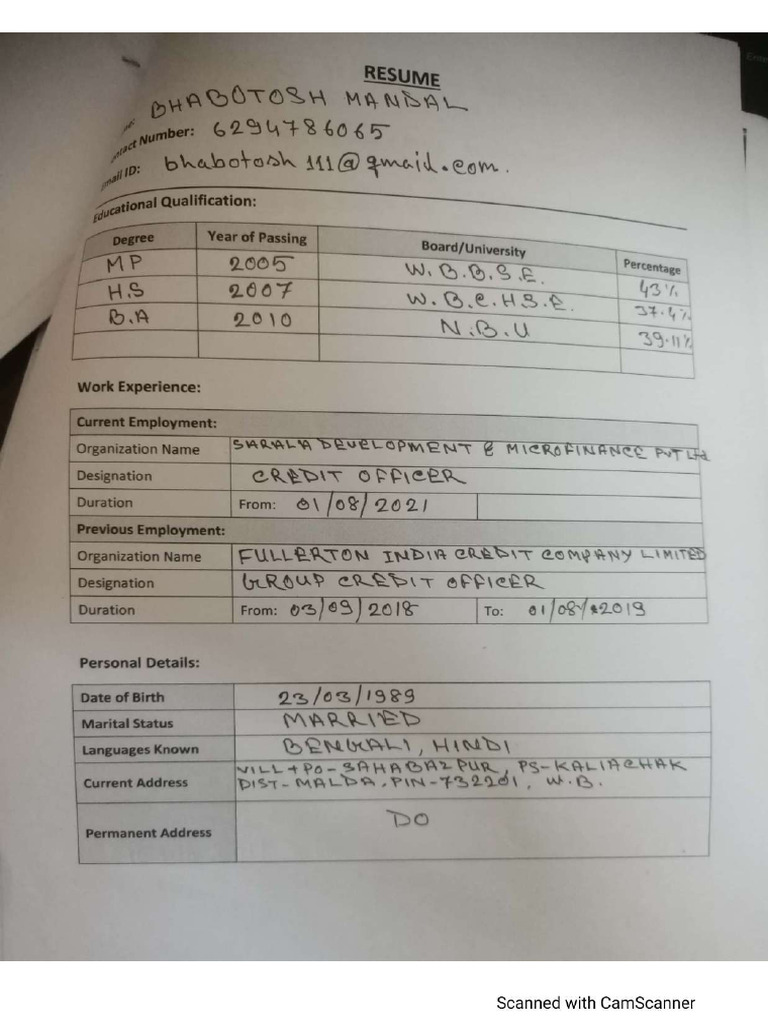 RESUME
BHABOTOSH MANDAL
Contact Number: 6294786065
Email ID: bhabotosh111@gmail.com.
Educational Qualification:
Degree Year of Passing Board/University Percentage
MP 2005 W.B.B.S.E. 43%
H.S 2007 W.B.C.H.S.E. 37.4%
B.A 2010 N.B.U 39.11%
Work Experience:
Current Employment:
Organization Name SARALA DEVELOPMENT & MICROFINANCE PVT Ltd
Designation CREDIT OFFICER
Duration From: 01/08/2021
Previous Employment:
Organization Name FULLERTON INDIA CREDIT COMPANY LIMITED
Designation GROUP CREDIT OFFICER
Duration From: 03/09/2018 To: 01/08/2019
Personal Details:
Date of Birth 23/03/1989
Marital Status MARRIED
Languages Known BENGALI, HINDI
Current Address VILL+PO-SAHABAZPUR, PS-KALIACHAK
DIST-MALDA, PIN-732201, W.B.
Permanent Address DO
Scanned with CamScanner